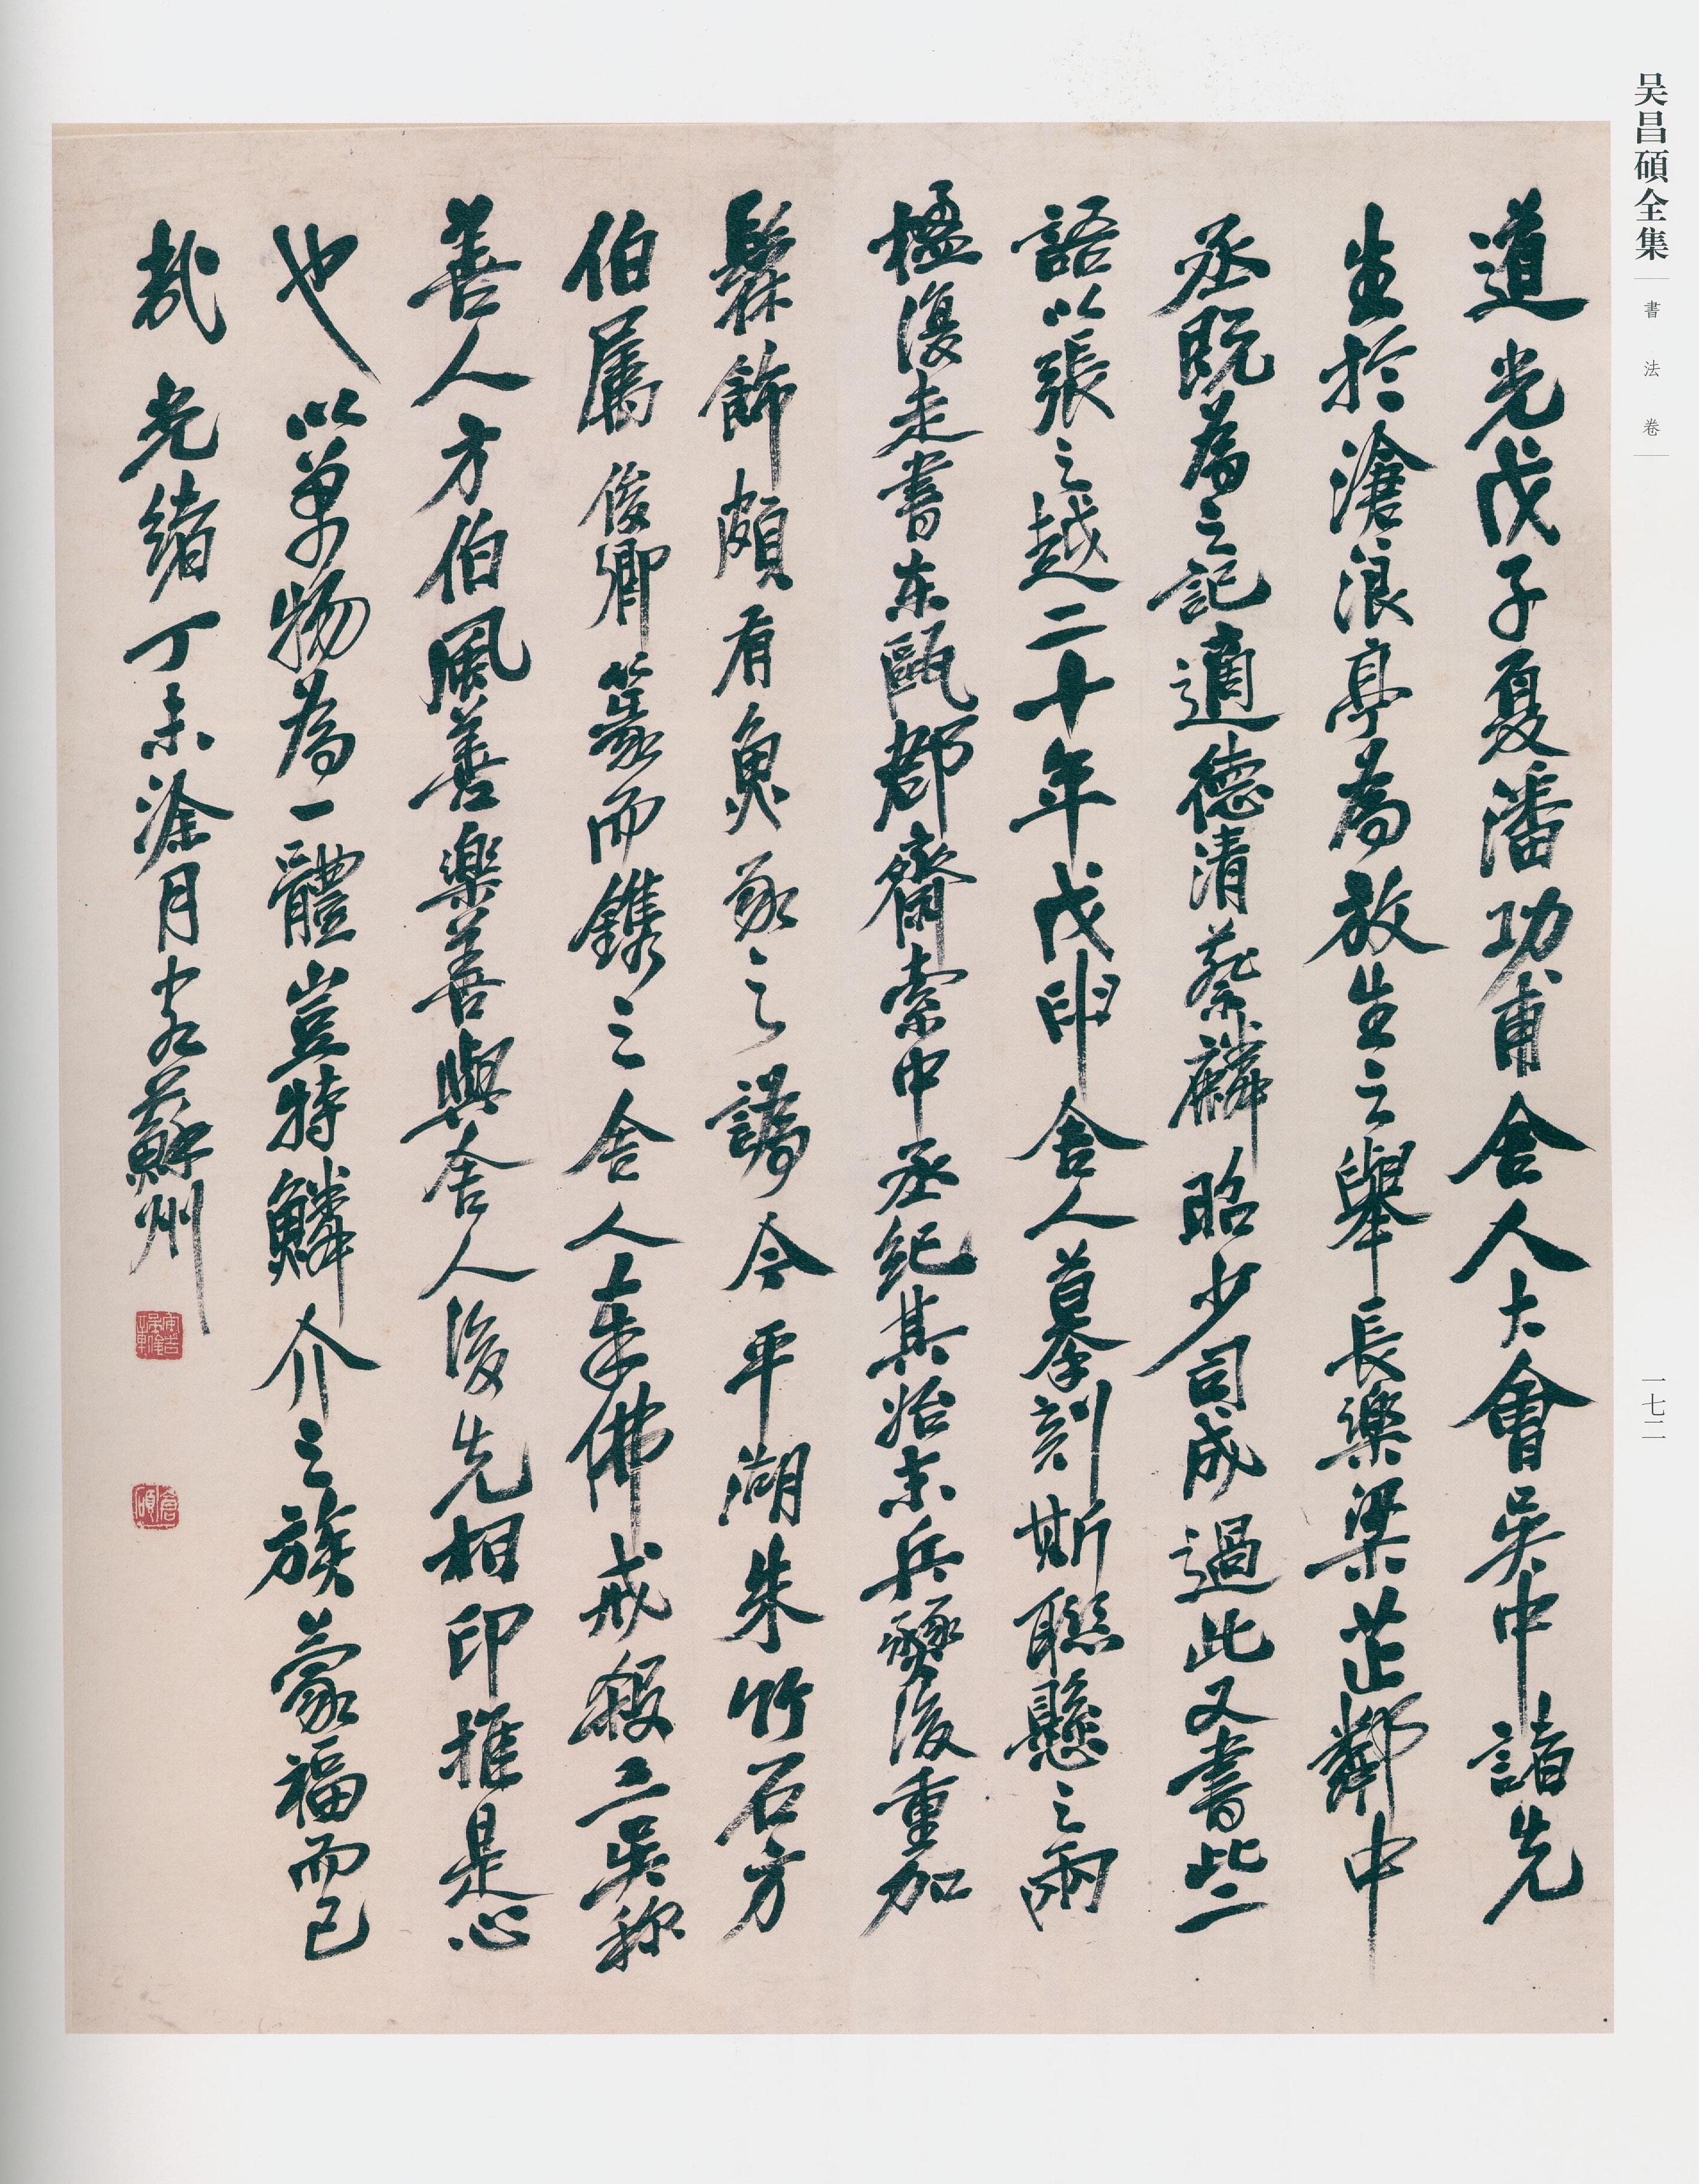 吴昌碩全集
書法卷
一七二
道光戊子夏潘功甫舍人大會吴中諸先
生於滄浪亭為放生之舉長樂梁芷鄰中
丞既為之記適德清蔡麟昭少司成過此又書此二
語以張之越二十年戊申舍人摹刻斯聯懸之兩
楹復走書东甌郡齋索中丞紀其始末兵燹後重加
髹飾頗有魚豕之譌今平湖朱竹石方
伯属俊卿篆而鐫之舍人奉佛戒殺三吴称
善人方伯風善樂善與舍人後先相印推是心
也以萬物為一體豈特鱗介之族蒙福而已
哉光緒丁未涂月客蘇州
倉碩